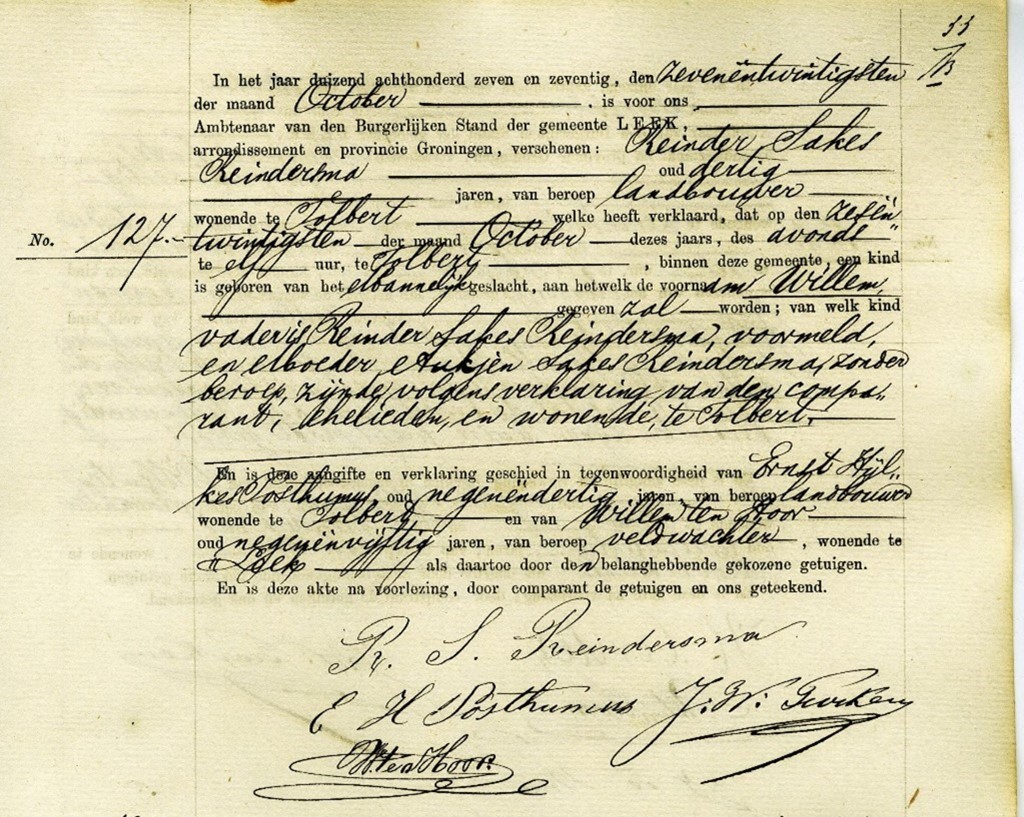 55
In het jaar duizend achthonderd zeven en zeventig, den zevenëntwintigsten
der maand October , is voor ons
Ambtenaar van den Burgerlijken Stand der gemeente LEEK,
arrondissement en provincie Groningen, verschenen: Reinder Sakes
Reindersma oud dertig
jaren, van beroep landbouwer
wonende te Tolbert welke heeft verklaard, dat op den zesën
No. 127.- twintigsten der maand October dezes jaars, des avonds
te elf uur, te Tolbert , binnen deze gemeente, een kind
is geboren van het Mannelijk geslacht, aan hetwelk de voornaam Willem,
gegeven zal worden; van welk kind
vader is Reinder Sakes Reindersma, voormeld,
en Moeder Aukjen Sakes Reindersma, zonder
beroep, zijnde volgens verklaring van den compa„
rant, Ehelieden, en wonende, te Tolbert.
En is deze aangifte en verklaring geschied in tegenwoordigheid van Ernst Hijl„
kes Posthumus, oud negenëndertig jaren, van beroep landbouwer
wonende te Tolbert, en van Willem ten Hoor
oud negenënvijftig jaren, van beroep veldwachter , wonende te
Leek als daartoe door den belanghebbende gekozene getuigen.
En is deze akte na voorlezing, door comparant de getuigen en ons geteekend.
R. S. Reindersma
E H Posthumus J. W.
W ten Hoor.